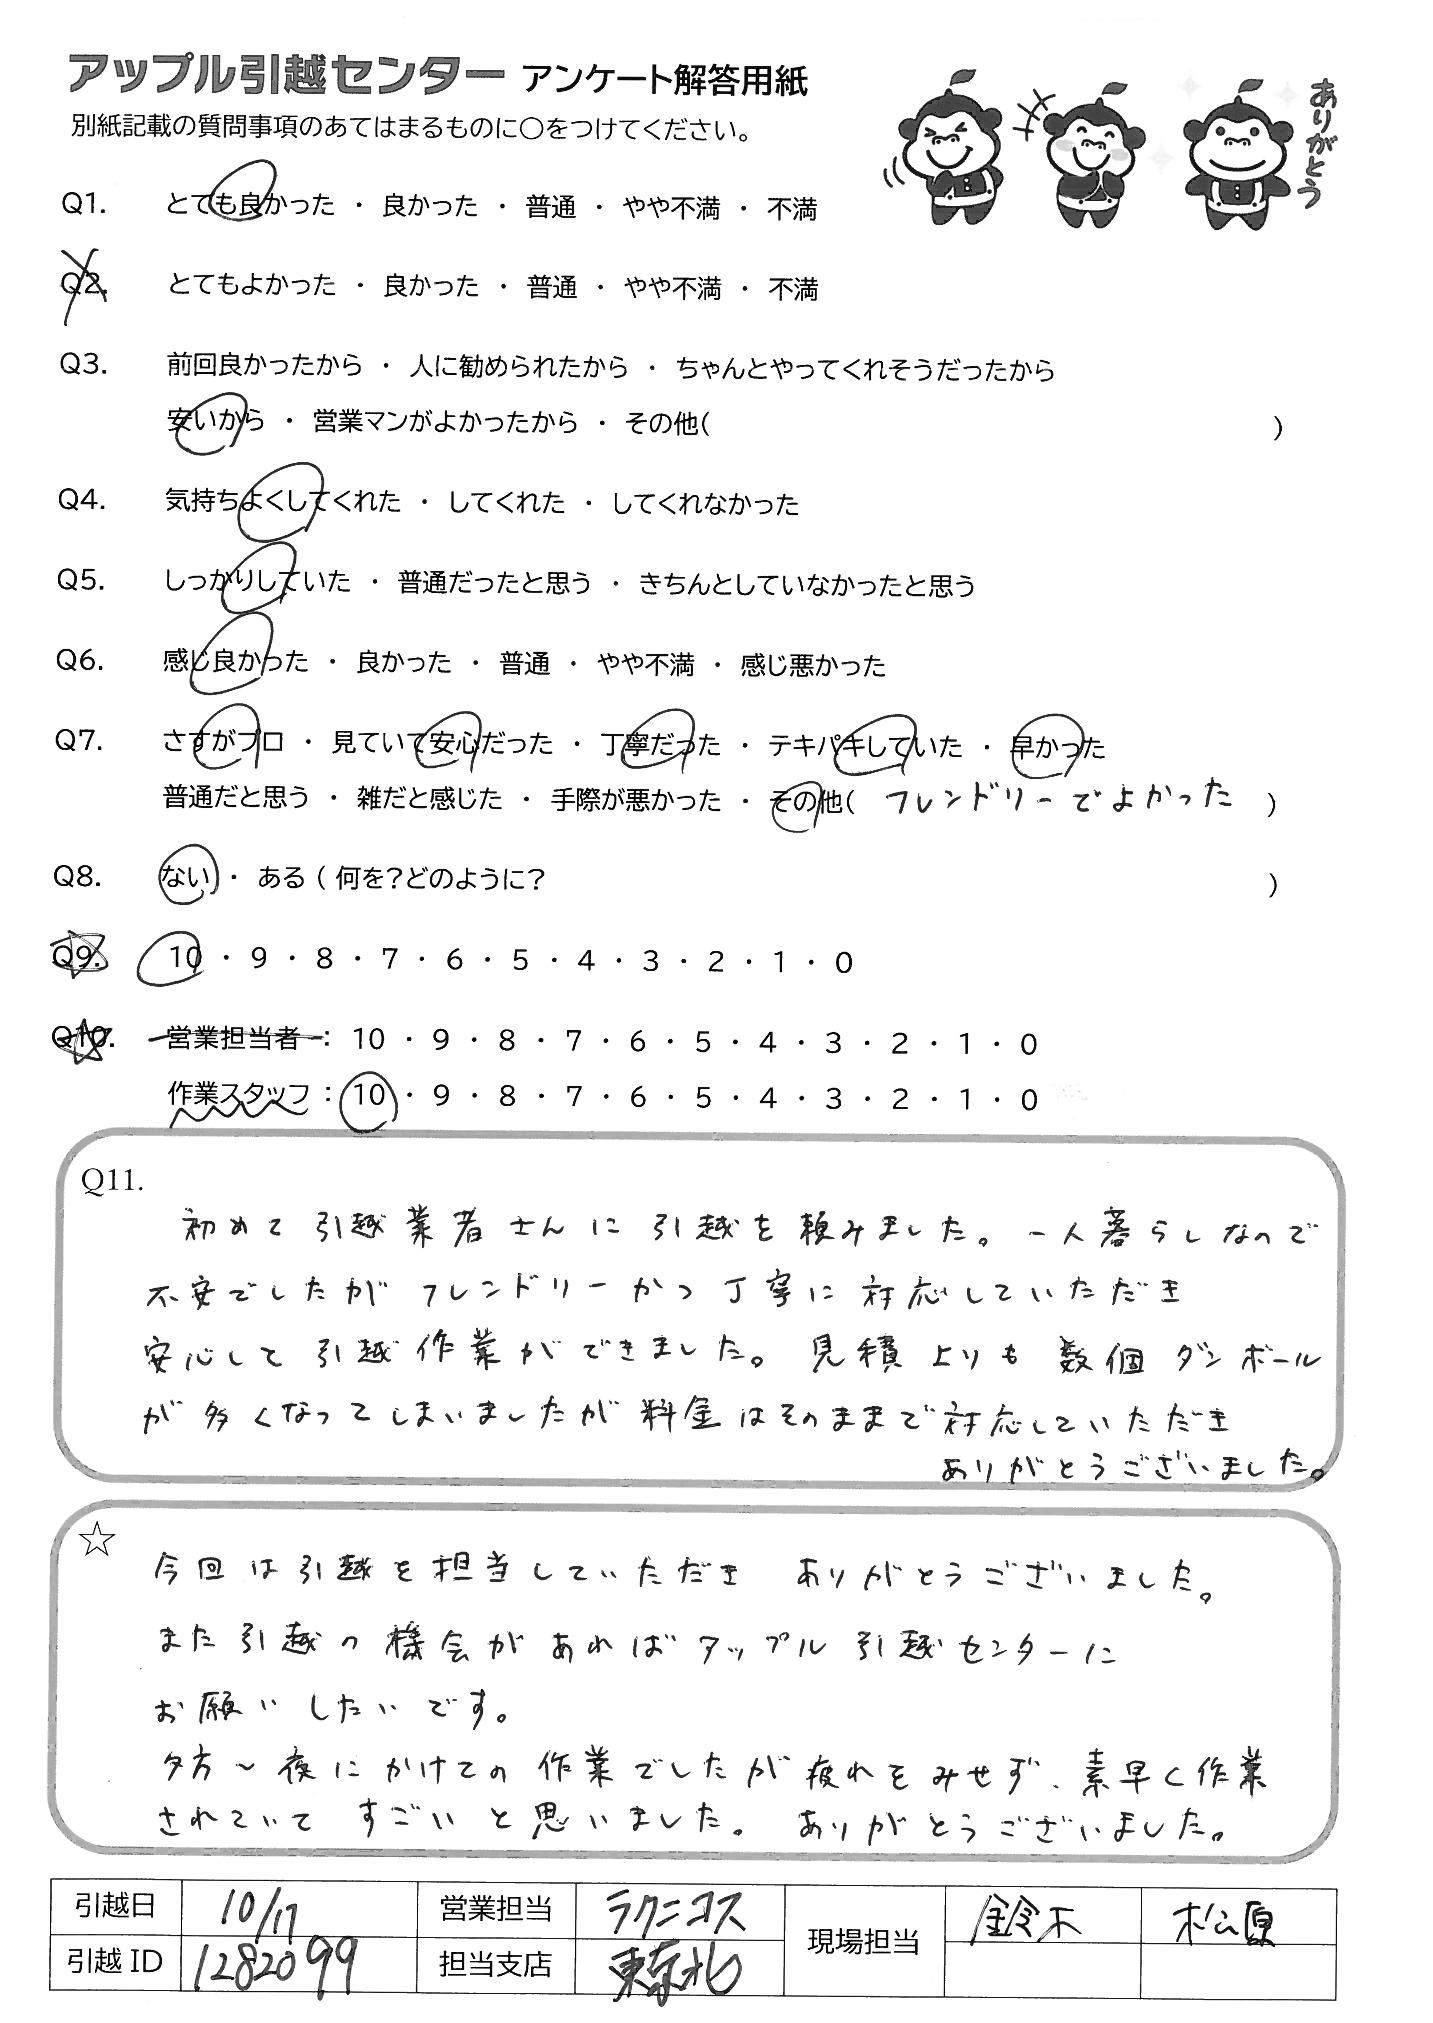 アップル引越センター アンケート解答用紙
別紙記載の質問事項のあてはまるものに○をつけてください。
ありがとう
Q1. とても良かった ・ 良かった ・ 普通 ・ やや不満 ・ 不満
Q2. とてもよかった ・ 良かった ・ 普通 ・ やや不満 ・ 不満
Q3. 前回良かったから ・ 人に勧められたから ・ ちゃんとやってくれそうだったから
安いから ・ 営業マンがよかったから ・ その他( )
Q4. 気持ちよくしてくれた ・ してくれた ・ してくれなかった
Q5. しっかりしていた ・ 普通だったと思う ・ きちんとしていなかったと思う
Q6. 感じ良かった ・ 良かった ・ 普通 ・ やや不満 ・ 感じ悪かった
Q7. さすがプロ ・ 見ていて安心だった ・ 丁寧だった ・ テキパキしていた ・ 早かった
普通だと思う ・ 雑だと感じた ・ 手際が悪かった ・ その他( フレンドリーでよかった )
Q8. ない ・ ある ( 何を?どのように? )
Q9. 10 ・ 9 ・ 8 ・ 7 ・ 6 ・ 5 ・ 4 ・ 3 ・ 2 ・ 1 ・ 0
Q10. 営業担当者 : 10 ・ 9 ・ 8 ・ 7 ・ 6 ・ 5 ・ 4 ・ 3 ・ 2 ・ 1 ・ 0
作業スタッフ : 10 ・ 9 ・ 8 ・ 7 ・ 6 ・ 5 ・ 4 ・ 3 ・ 2 ・ 1 ・ 0
Q11.
初めて引越業者さんに引越を頼みました。一人暮らしなので
不安でしたがフレンドリーかつ丁寧に対応していただき
安心して引越作業ができました。見積よりも数個ダンボール
が多くなってしまいましたが料金はそのままで対応していただき
ありがとうございました。
☆
今回は引越を担当していただき ありがとうございました。
また引越の機会があればアップル引越センターに
お願いしたいです。
夕方～夜にかけての作業でしたが疲れをみせず、素早く作業
されていてすごいと思いました。ありがとうございました。
引越日 10/17 営業担当 ラクニコス 現場担当 鈴木 松原
引越ID 1282099 担当支店 東京北